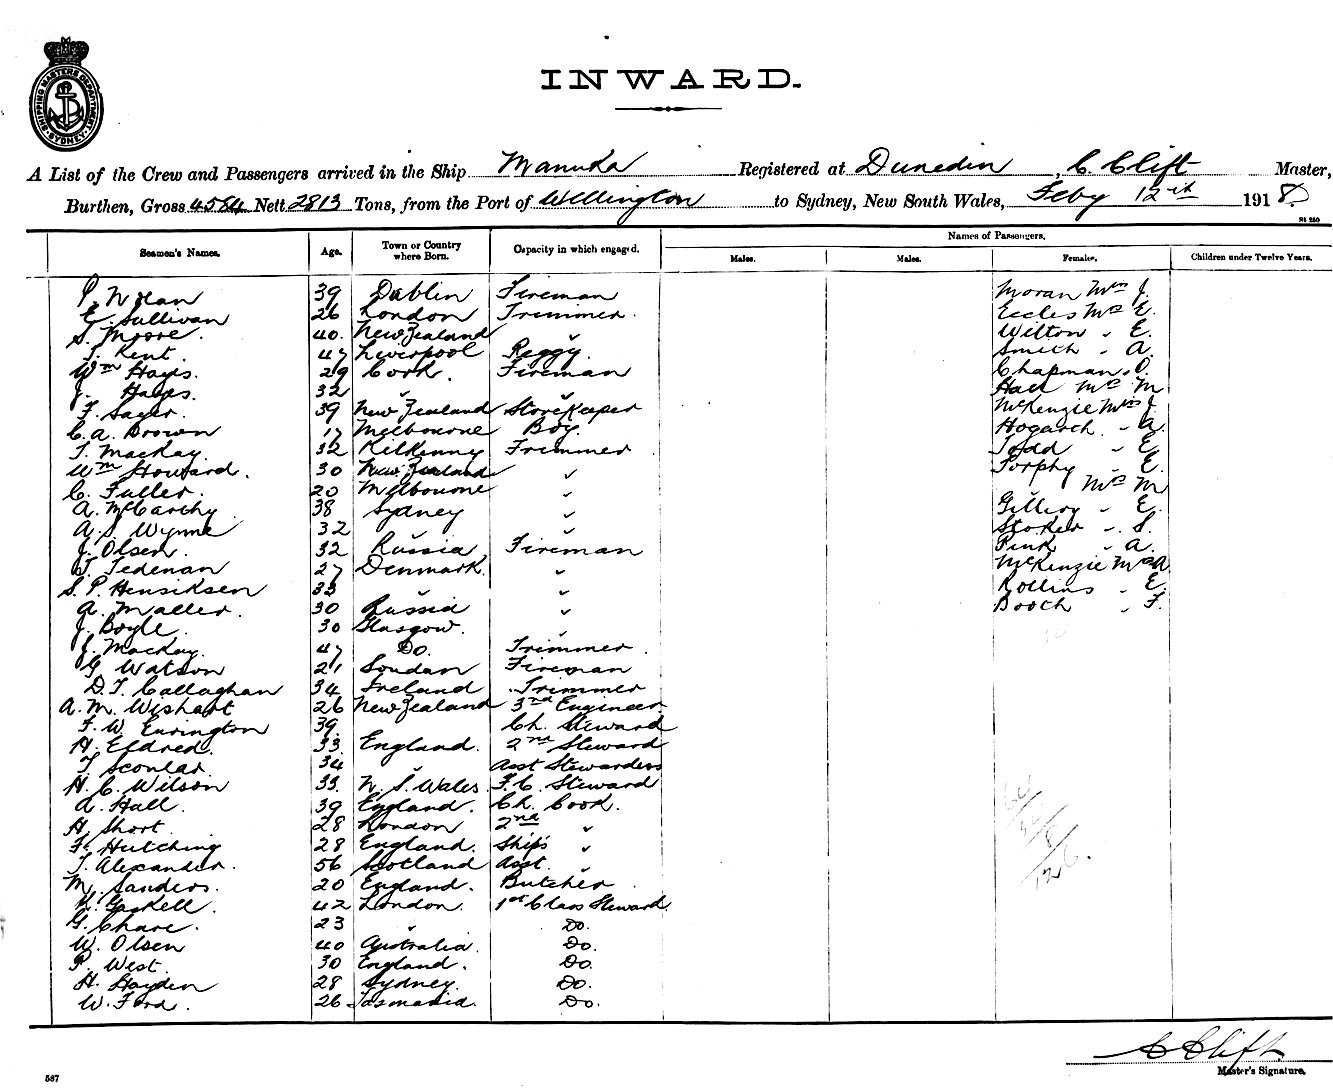 SHIPPING MASTERS DEPARTMENT
SYDNEY
INWARD.
A List of the Crew and Passengers arrived in the Ship Manuka Registered at Dunedin, C. Clift Master,
Burthen, Gross 4534 Nett 2813 Tons, from the Port of Wellington to Sydney, New South Wales, Feby 12th 1918
Names of Passengers.
Seamen's Names. Age. Town or Country where Born. Capacity in which engaged. Males. Males. Females. Children under Twelve Years.
P. Nolan 39 Dublin Fireman Moran Mrs J.
E. Sullivan 26 London Trimmer Eccles Mrs E.
S. Moore 40 New Zealand " Wilton " E.
T. Kent 47 Liverpool Peggy Smith " A.
Wm Hayes 29 Cork Fireman Chapman " O.
J. Hayes 32 " " Hall Mrs M
F. Sager 39 New Zealand Storekeeper McKenzie Miss J.
C. A. Brown 17 Melbourne Boy Hogarth " A.
T. Mackay 32 Kilkenny Trimmer Todd " E.
Wm Howard 30 New Zealand " Torphy " E.
C. Fuller 20 Melbourne " " Mrs M
A. McCarthy 38 Sydney " Gillroy " E.
A. S. Wynne 32 " " Stoker " S.
J. Olsen 32 Russia Fireman Pink " A.
T. Tedenan 27 Denmark " McKenzie Mrs A
S. P. Hensiksen 33 " " Rollins " E.
A. Maller 30 Russia " Booth " F.
J. Boyle 30 Glasgow "
J. Mackay 47 Do. Trimmer
G. Watson 21 Soudan Fireman
D. T. Callaghan 34 Ireland Trimmer
A. M. Wishart 26 New Zealand 3rd Engineer
F. W. Eurington 39 " Ch. Steward
H. Eldred 33 England 2nd Steward
T. Scoular 34 " Asst Stewardess
H. C. Wilson 33 N. S. Wales F. C. Steward
A. Hall 39 England Ch. Cook
H. Short 28 London 2nd "
F. Hutching 28 England Ships "
T. Alexander 56 Scotland Asst "
M. Sanders 20 England Butcher
H. Gaskell 42 London 1st Class Steward
G. Chare 23 " Do.
W. Olsen 40 Australia Do.
P. West 30 England Do.
H. Hayden 28 Sydney Do.
W. Ford 26 Tasmania Do.
C Clift
Master's Signature.
567